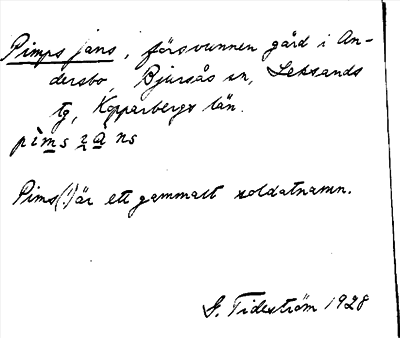 Pimps jans, försvunnen gård i An-
dersbo, Bjursås sn, Leksands
tg, Kopparbergs län.
pìms z a ns
Pims(!) är ett gammalt soldatnamn.
G. Tideström 1928